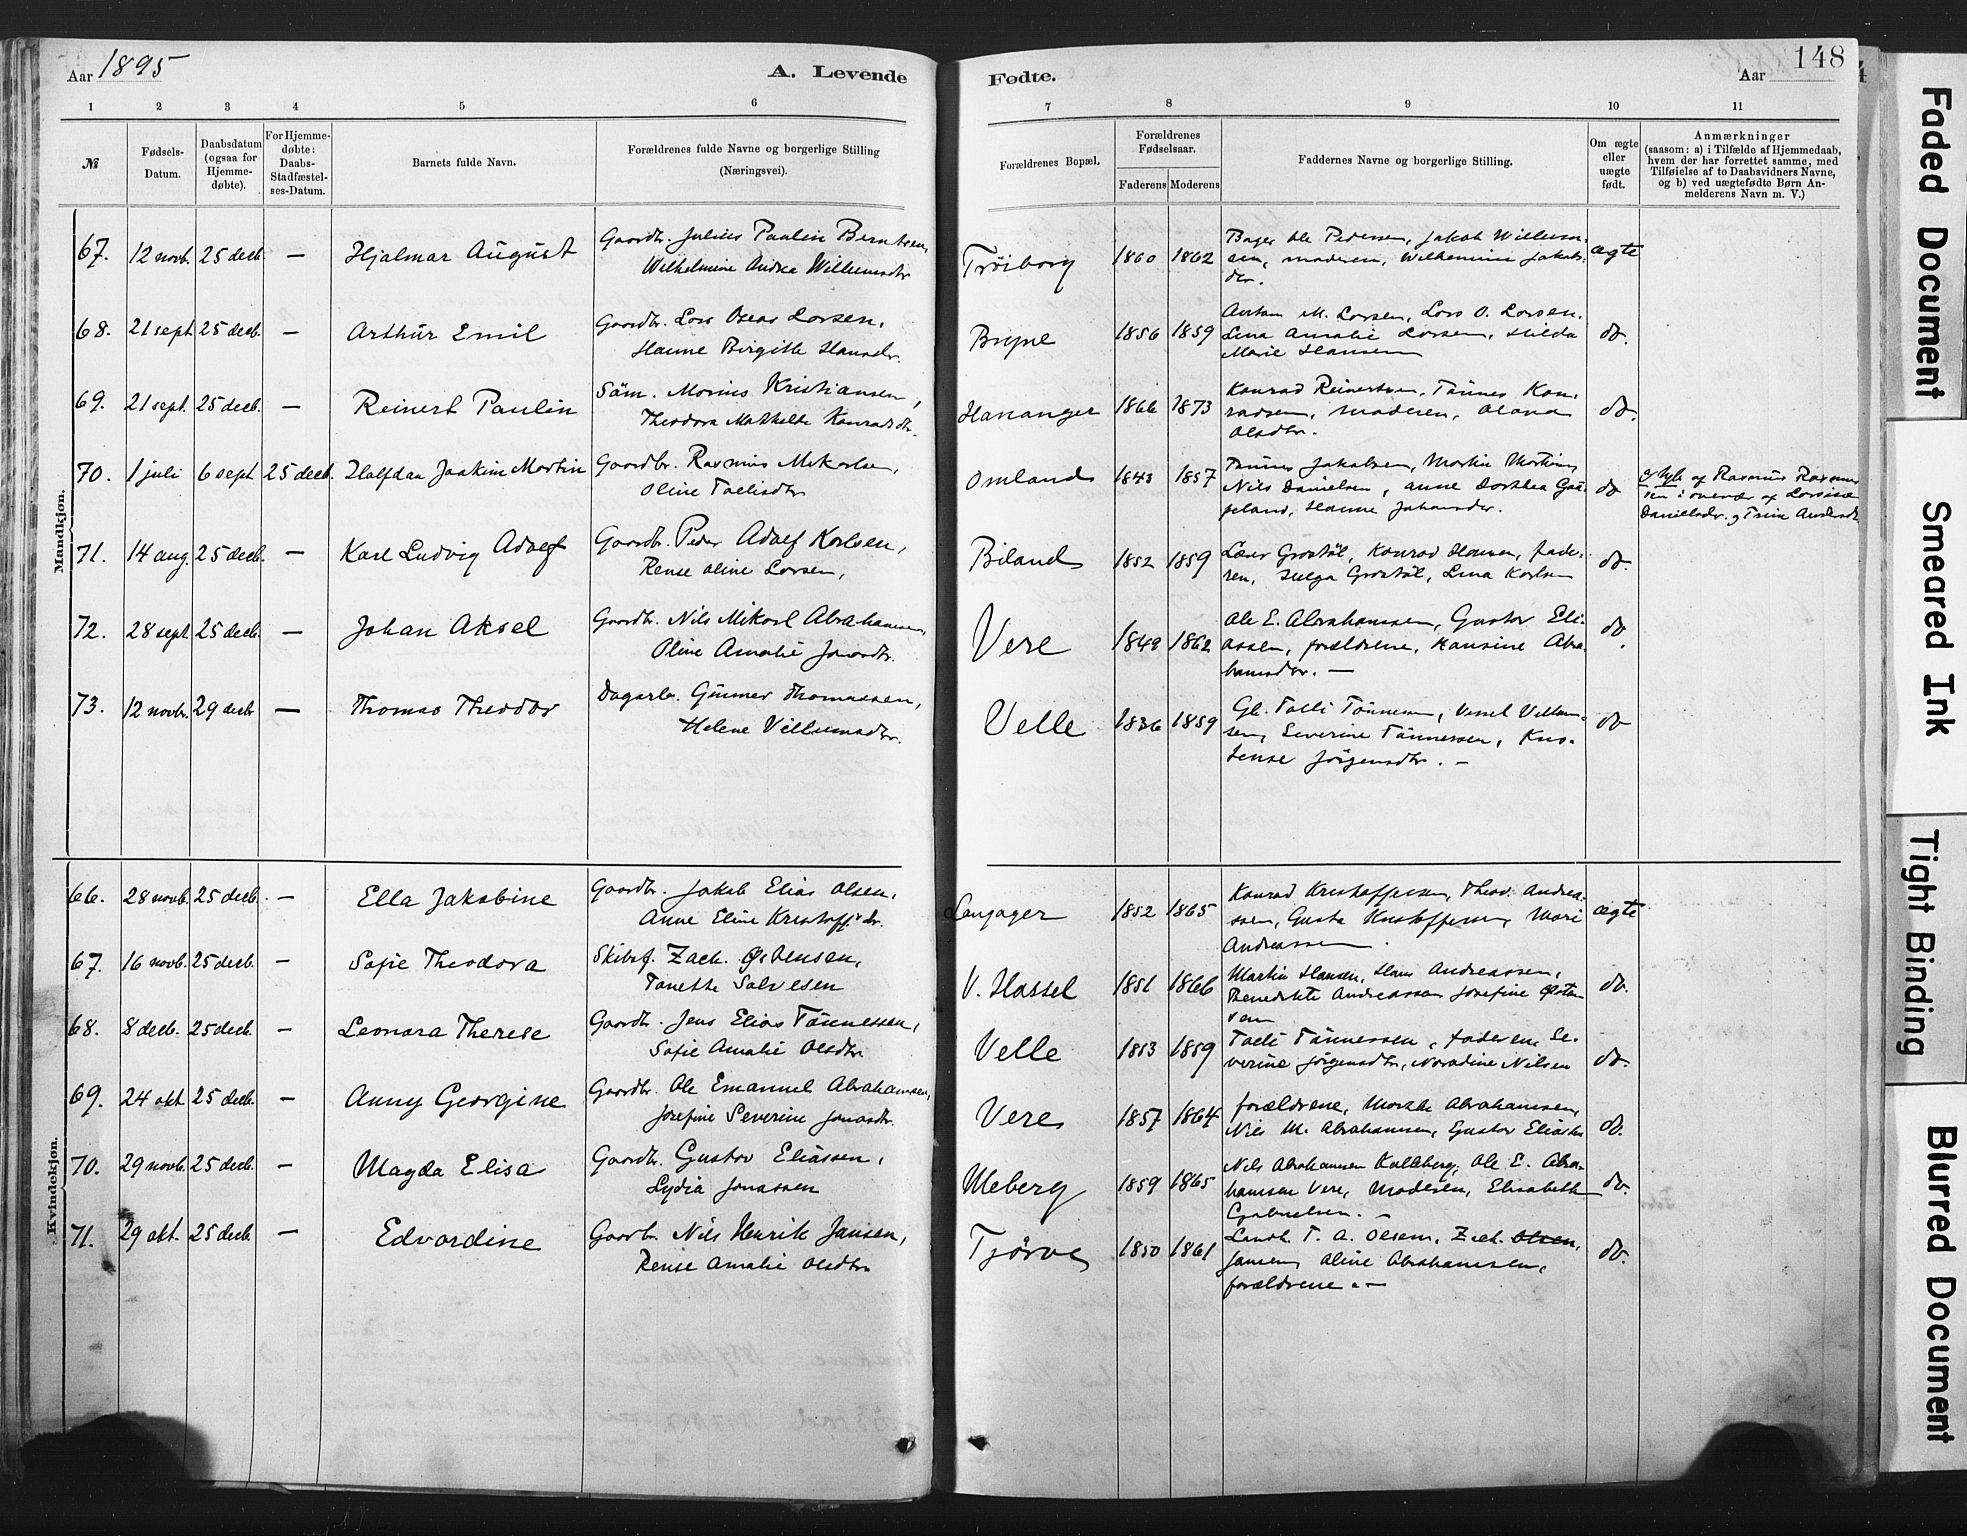 Aar 1895
A. Levende
Fødte.
Aar
148
1 2 3 4 5 6 7 8 9 10 11
№
Fødsels-
Datum.
Daabsdatum
(ogsaa for
Hjemme-
døbte).
For Hjemme-
døbte:
Daabs-
Stadfæstel-
ses-Datum.
Barnets fulde Navn.
Forældrenes fulde Navne og borgerlige Stilling
(Næringsvei).
Forældrenes Bopæl.
Forældrenes
Fødselsaar.
Faderens Moderens
Faddernes Navne og borgerlige Stilling.
Om ægte
eller
uægte
født.
Anmærkninger
(saasom: a) i Tilfælde af Hjemmedaab,
hvem der har forrettet samme, med
Tilføielse af to Daabsvidners Navne,
og b) ved uægtefødte Børn An-
melderens Navn m. V.)
Mandkjøn.
67. 12 novb. 25 decb. — Hjalmar August
Gaardbr. Julius Paulin Berntsen,
Wilhelmine Andrea Willumsdtr
Trøiborg 1860 1862
Ole Pedersen, Jakob Willum-
sen, moderen, Wilhelmine Jakobs-
dtr.
ægte
68. 21 sept. 25 decb. — Arthur Emil
Gaardbr. Lars Oscar Larsen,
Hanne Birgitte Hansdtr.
Bryne 1856 1859
M. Larsen, Lars O. Larsen,
Lina Amalie Larsen, Hilda
Marie Hansen
do.
69. 21 sept. 25 decb. — Reinert Paulin
Søm. Marius Kristiansen,
Theodora Mathilde Konradsdtr.
Hananger 1866 1873
Konrad Reinertsen, Tønnes Kon-
radsen, moderen, Olava
Olsdtr.
do.
70. 1 juli 6 sept 25 decb. Halfdan Joakim Martin
Gaardbr. Rasmus Mikalsen,
Oline Tollisdtr
Omland 1843 1857
Tønnes Jakobsen, Martin Martins,
Nils Danielsen, Anne Dorthea
Hanne Johansdtr.
do
af Rasmus Rasmus-
sen i overvær af
Danielsdtr. og Trine
71. 14 aug. 25 decb. — Karl Ludvig Adolf
Gaardbr. Peder Adolf Karlsen,
Rense Oline Larsen,
Biland 1852 1859
Konrad Hansen, fade-
ren, Helga Lina Karlsen
do.
72. 28 sept. 25 decb. — Johan Aksel
Gaardbr. Nils Mikael Abrahamsen,
Oline Amalie Jonasdtr.
Vere 1849 1862
Ole E. Abrahamsen, Gustav Eli-
assen, forældrene, Hansine Abra-
hamsdtr. —
do.
73. 12 novbr. 29 decbr — Thomas Theodor
Dagarb. Gunner Thomassen,
Helene Villumsdtr.
Velle 1836 1859
Tolli Tønnessen, Villum-
sen, Severine Tønnessen,
Jørgensdtr. —
do
Kvindekjøn.
66. 28 novb. 25 decb. — Ella Jakobine
Gaardbr. Jakob Elias Olsen,
Anne Eline Kristoff.dtr.
Langager 1852 1865
Konrad Kristoffersen, Theod. Andrea-
ssen, Gusta Kristoffersen, Mari
Andreassen.
ægte
67. 16 novb. 25 decb. — Sofie Theodora
Skibsf. Zach. Østensen,
Tonette Salvesen
V. Hassel 1851 1866
Martin Hansen, Hans Andreassen,
Benedikte Andreassen Josefine Østen-
sen
do.
68. 8 decb. 25 decb. — Leonora Therese
Gaardbr. Jens Elias Tønnessen,
Sofie Amalie Olsdtr.
Velle 1853 1859
Tolli Tønnessen, faderen, Se-
verine Jørgensdtr, Nilsen
do.
69. 24 okt. 25 decb. — Anny Georgine
Gaardbr. Ole Emanuel Abrahamsen,
Josefine Severine Jonasdtr.
Vere 1857 1864
forældrene, Abrahamsen,
Nils M. Abrahamsen, Gustav Eliassen
do.
70. 29 novb. 25 decb. — Magda Elisa
Gaardbr. Gustav Eliassen,
Lydia Jonassen
Meberg 1859 1865
Nils Abrahamsen Kalleberg, Ole E. Abra-
hamsen Vere, Moderen, Elisabeth
Gabrielsen. —
do.
71. 29 okt. 25 decb. — Edvardine
Gaardbr. Nils Henrik Jansen,
Rense Amalie Olsdtr.
Tjørve 1850 1861
T. A. Olsen, Zach. Olsen,
Jansen, Aline Abrahamsen,
forældrene. —
do.
Faded Document
Smeared Ink
Tight Binding
Blurred Document